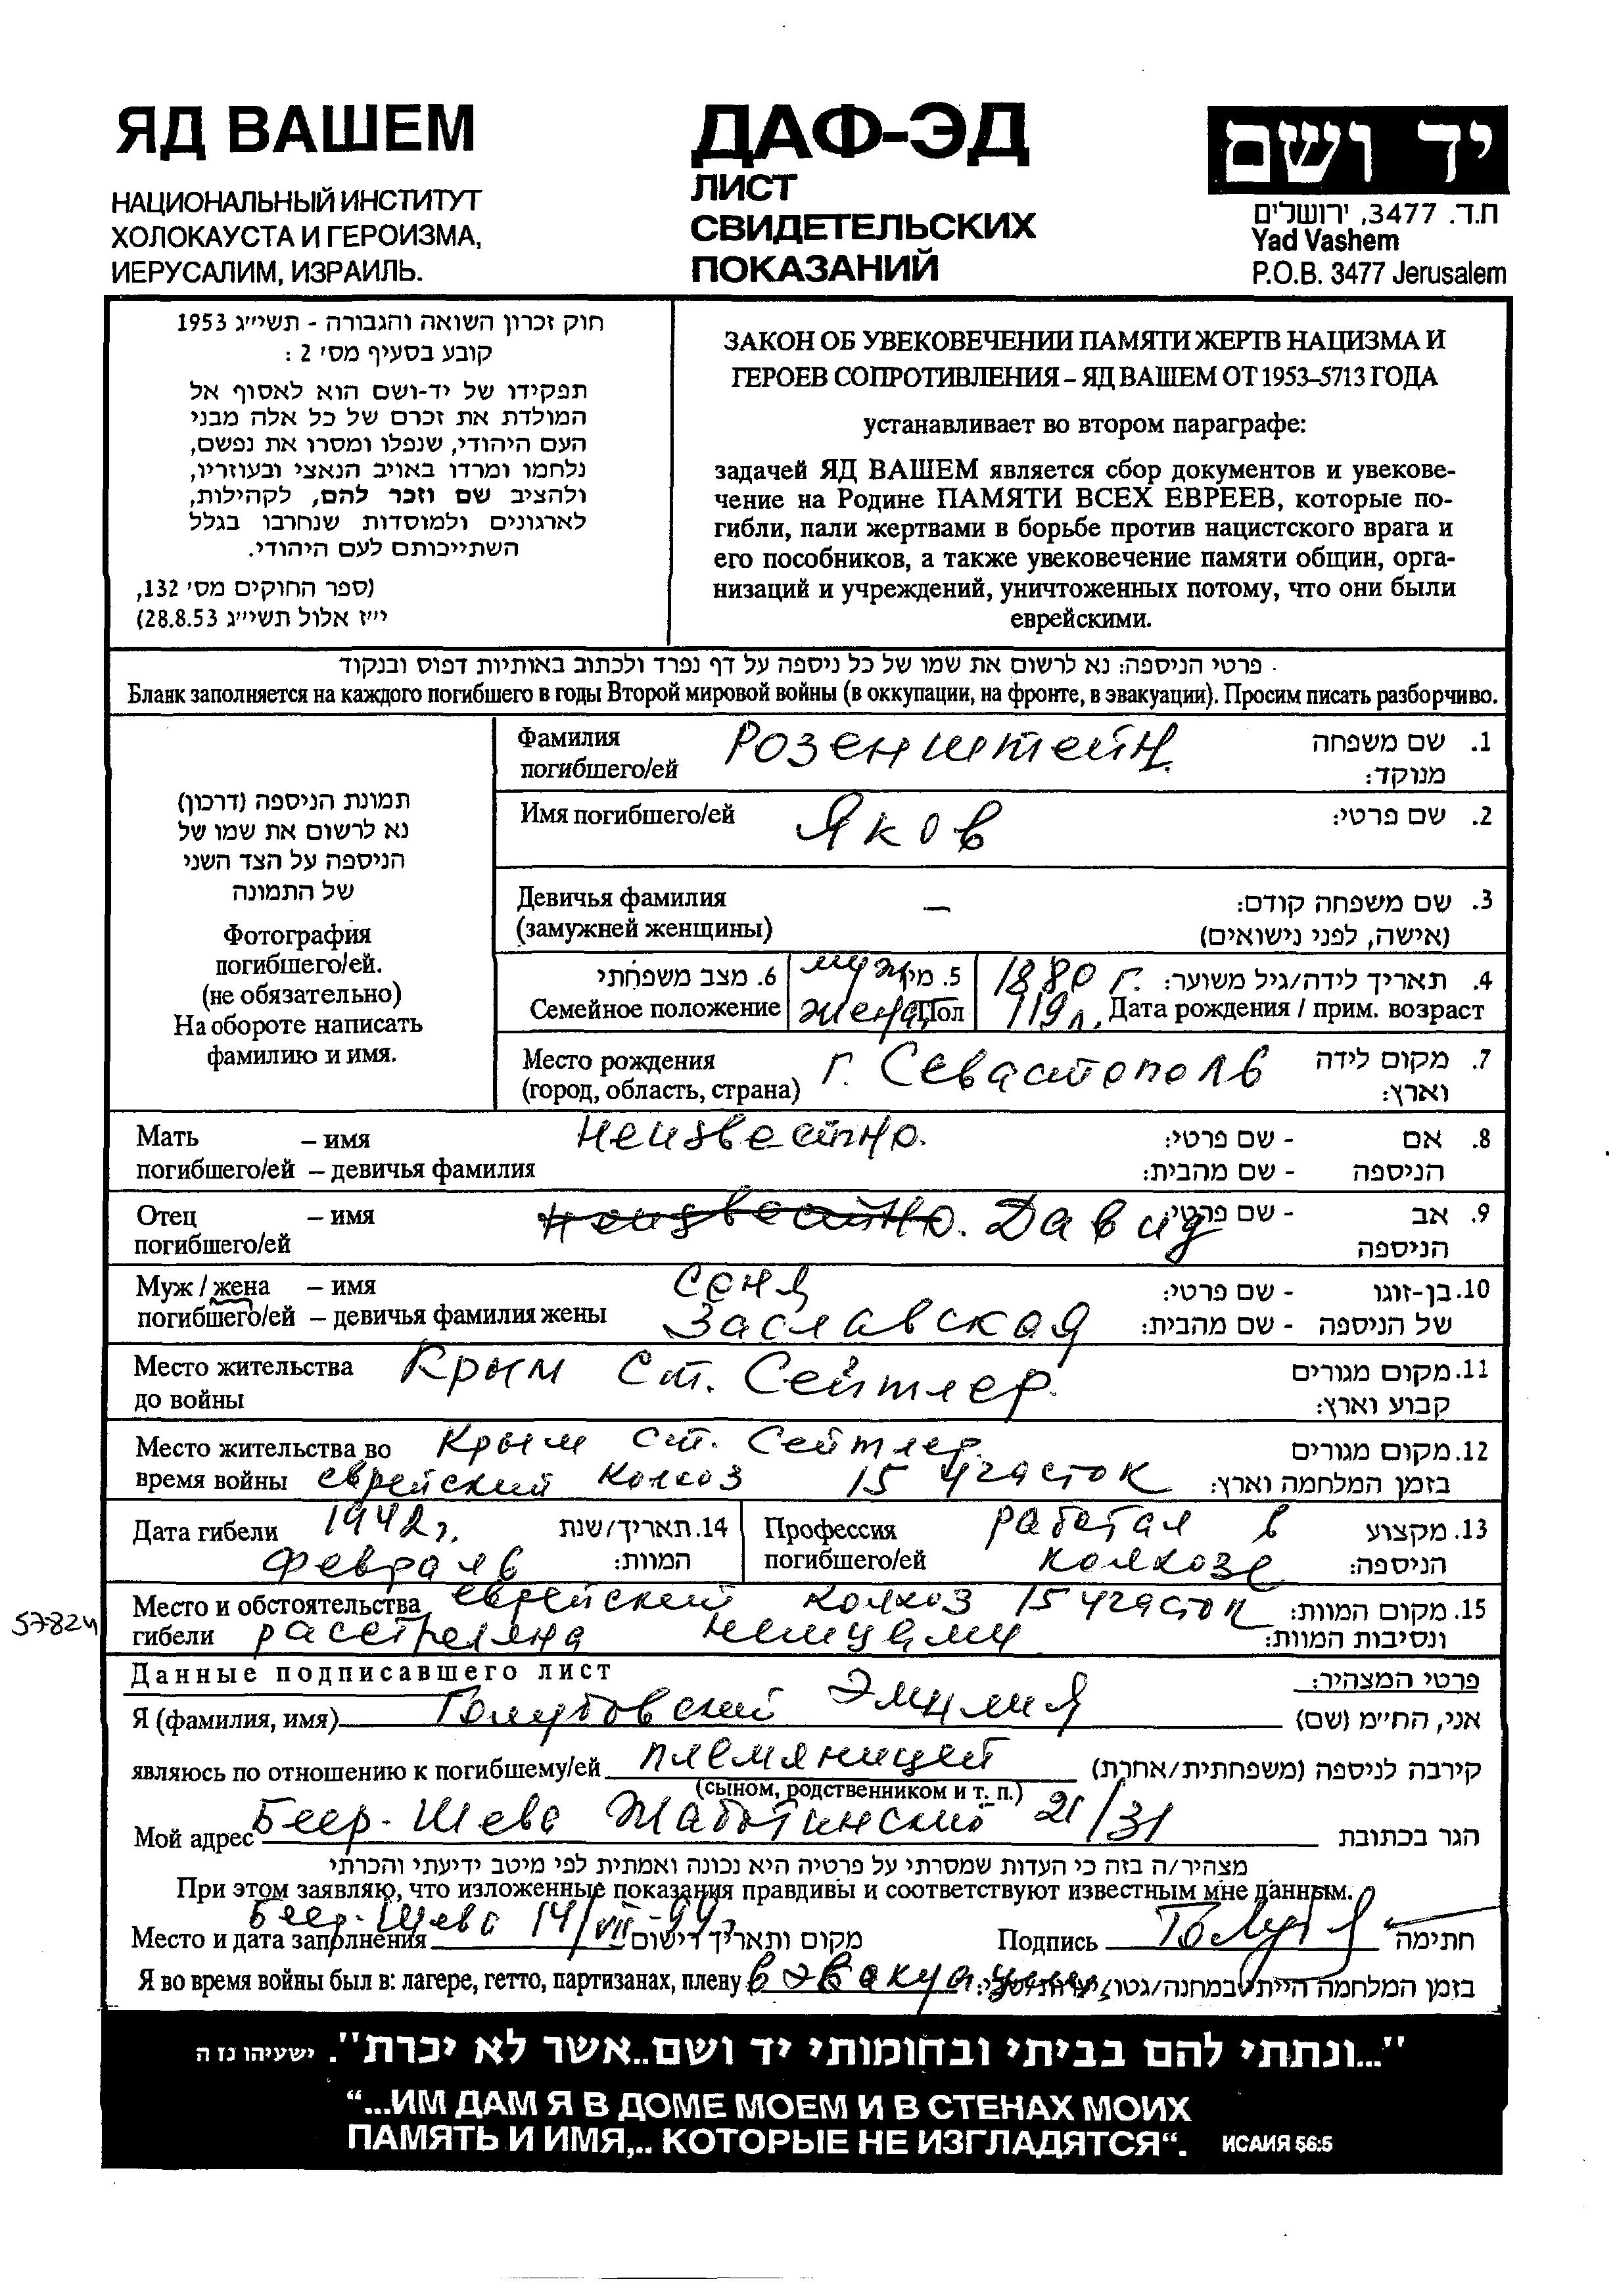 ЯД ВАШЕМ
НАЦИОНАЛЬНЫЙ ИНСТИТУТ
ХОЛОКАУСТА И ГЕРОИЗМА,
ИЕРУСАЛИМ, ИЗРАИЛЬ.
ДАФ-ЭД
ЛИСТ
СВИДЕТЕЛЬСКИХ
ПОКАЗАНИЙ
יד ושם
ת.ד. 3477, ירושלים
Yad Vashem
P.O.B. 3477 Jerusalem
חוק זכרון השואה והגבורה - תשי״ג 1953
קובע בסעיף מס׳ 2 :
תפקידו של יד-ושם הוא לאסוף אל
המולדת את זכרם של כל אלה מבני
העם היהודי, שנפלו ומסרו את נפשם,
נלחמו ומרדו באויב הנאצי ובעוזריו,
ולהציב שם וזכר להם, לקהילות,
לארגונים ולמוסדות שנחרבו בגלל
השתייכותם לעם היהודי.
(ספר החוקים מס׳ 132,
י״ז אלול תשי״ג 28.8.53)
ЗАКОН ОБ УВЕКОВЕЧЕНИИ ПАМЯТИ ЖЕРТВ НАЦИЗМА И
ГЕРОЕВ СОПРОТИВЛЕНИЯ – ЯД ВАШЕМ ОТ 1953–5713 ГОДА
устанавливает во втором параграфе:
задачей ЯД ВАШЕМ является сбор документов и увекове-
чение на Родине ПАМЯТИ ВСЕХ ЕВРЕЕВ, которые по-
гибли, пали жертвами в борьбе против нацистского врага и
его пособников, а также увековечение памяти общин, орга-
низаций и учреждений, уничтоженных потому, что они были
еврейскими.
פרטי הניספה: נא לרשום את שמו של כל ניספה על דף נפרד ולכתוב באותיות דפוס ובנקוד
Бланк заполняется на каждого погибшего в годы Второй мировой войны (в оккупации, на фронте, в эвакуации). Просим писать разборчиво.
תמונת הניספה (דרכון)
נא לרשום את שמו של
הניספה על הצד השני
של התמונה
Фотография
погибшего/ей.
(не обязательно)
На обороте написать
фамилию и имя.
Фамилия Розенштейн 1. שם משפחה
погибшего/ей מנוקד:
Имя погибшего/ей Яков 2. שם פרטי:
Девичья фамилия — 3. שם משפחה קודם:
(замужней женщины) (אישה, לפני נישואים)
6. מצב משפחתי муж 5. מין 1880 г. 4. תאריך לידה/גיל משוער:
Семейное положение женат Пол 119 л. Дата рождения / прим. возраст
Место рождения г. Севастополь 7. מקום לידה
(город, область, страна) וארץ:
Мать – имя неизвестно. - שם פרטי: 8. אם
погибшего/ей – девичья фамилия - שם מהבית: הניספה
Отец – имя неизвестно. Давид - שם פרטי: 9. אב
погибшего/ей הניספה
Муж / жена – имя Соня - שם פרטי: 10. בן-זוגו
погибшего/ей – девичья фамилия жены Заславская - שם מהבית: של הניספה
Место жительства Крым ст. Сейтлер. 11. מקום מגורים
до войны קבוע וארץ:
Место жительства во Крым ст. Сейтлер. 12. מקום מגורים
время войны еврейский колхоз 15 участок בזמן המלחמה וארץ:
Дата гибели 1942г. 14. תאריך/שנת Профессия работал в 13. מקצוע
февраль המוות: погибшего/ей колхозе הניספה:
Место и обстоятельства еврейский колхоз 15 участок 15. מקום המוות:
57824
гибели расстреляна немцами ונסיבות המוות:
Данные подписавшего лист פרטי המצהיר:
Я (фамилия, имя) Голубовский Эмилия אני, הח״מ (שם)
являюсь по отношению к погибшему/ей племяницей קירבה לניספה (משפחתית/אחרת)
(сыном, родственником и т. п.)
Мой адрес Беер-Шева Жаботинский 21/31 הגר בכתובת
מצהיר/ה בזה כי העדות שמסרתי על פרטיה היא נכונה ואמתית לפי מיטב ידיעתי והכרתי
При этом заявляю, что изложенные показания правдивы и соответствуют известным мне данным.
Место и дата заполнения Беер-Шева 14/VII-99г מקום ותאריך רישום Подпись חתימה
Я во время войны был в: лагере, гетто, партизанах, плену в эвакуации בזמן המלחמה הייתי במחנה/גטו/
"...ונתתי להם בביתי ובחומותי יד ושם..אשר לא יכרת". ישעיהו נז ה
“...ИМ ДАМ Я В ДОМЕ МОЕМ И В СТЕНАХ МОИХ
ПАМЯТЬ И ИМЯ,.. КОТОРЫЕ НЕ ИЗГЛАДЯТСЯ“. ИСАИЯ 56:5